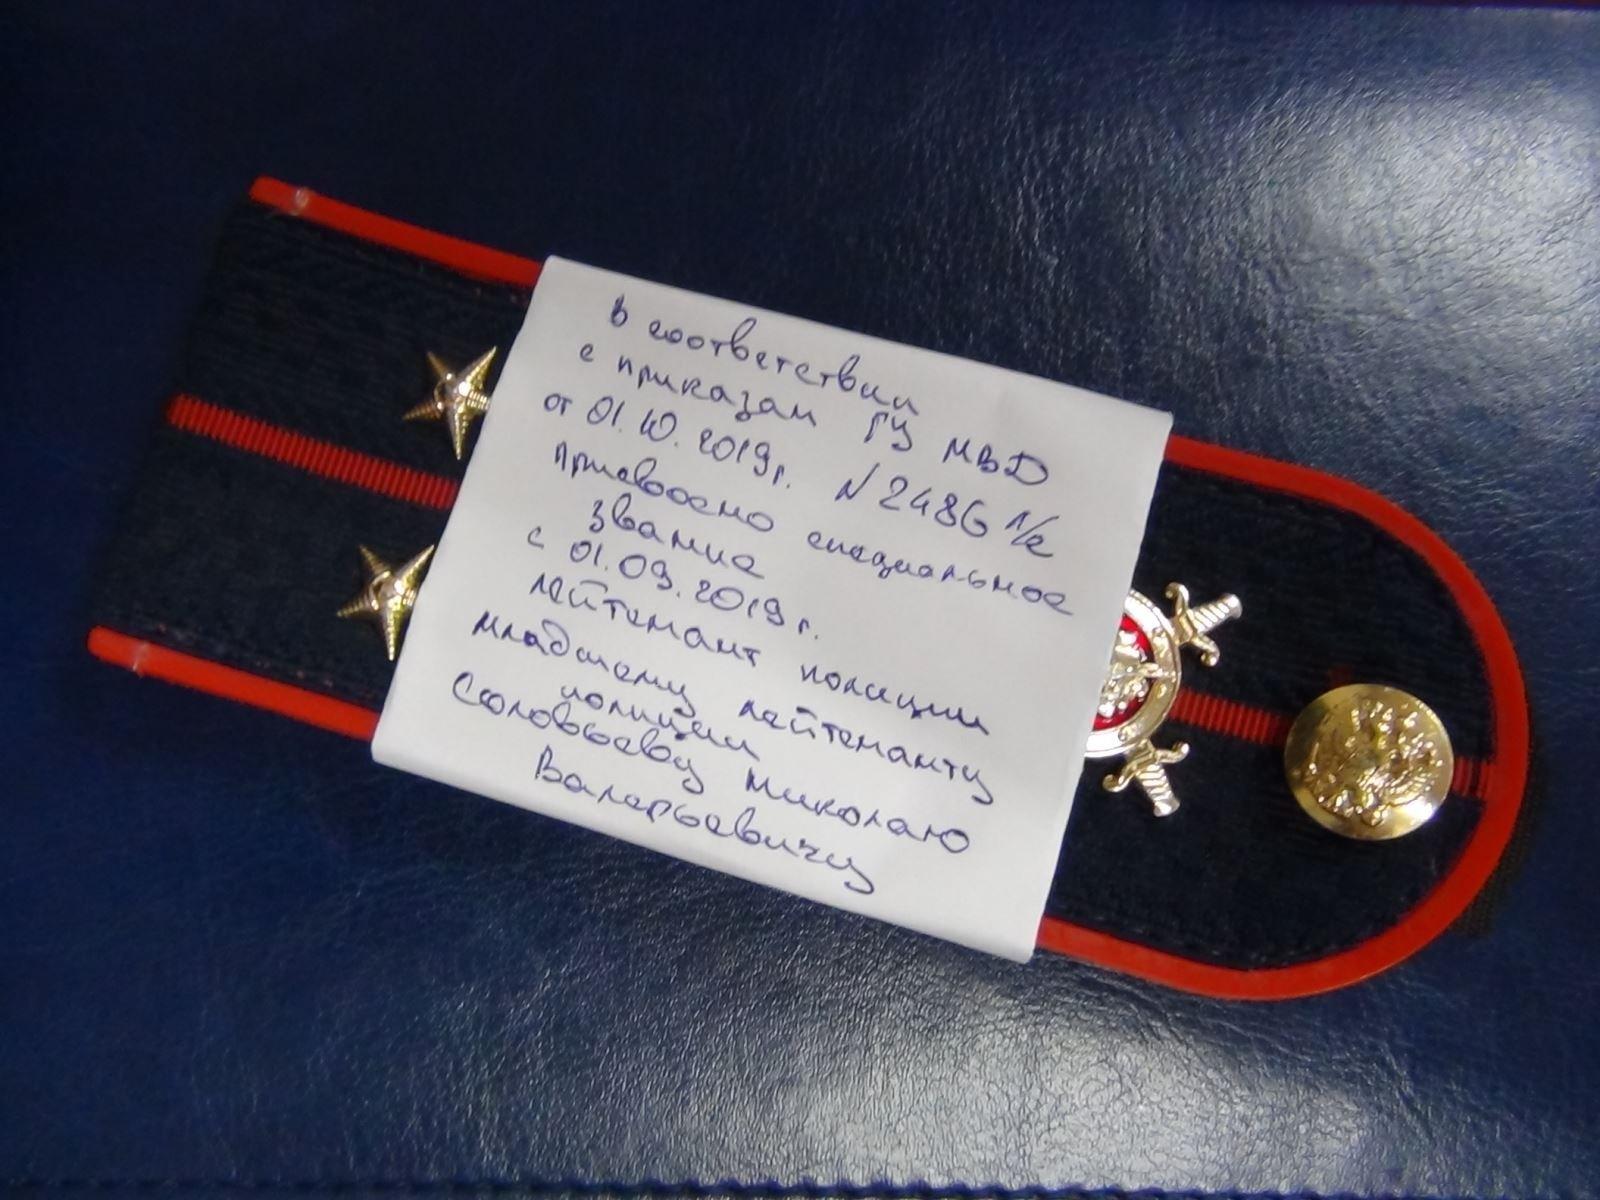 В соответствии
с приказам ГУ МВД
от 01.10.2019г. N 2486 л/с
присвоено специальное
звание
с 01.09.2019 г.
лейтенант полиции
младшему лейтенанту
полиции
Соловьеву Николаю
Валерьевичу